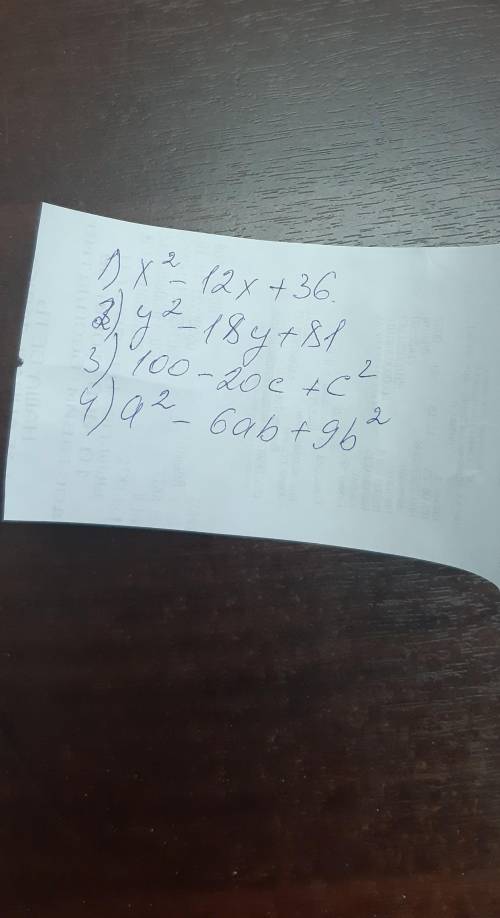 1) x² - 12x + 36.
2) y² - 18y + 81
3) 100 - 20c + c²
4) a² - 6ab + 9b²